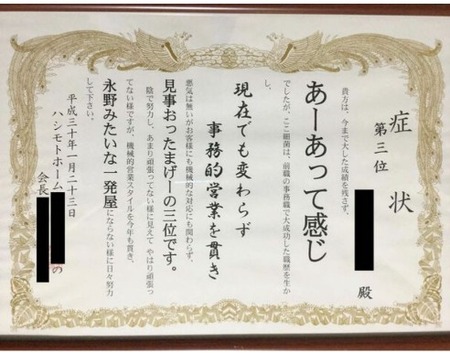 症状
第三位
殿
貴方は、今まで大した成績を残さず、
あーあって感じ
でしたが、ここ細菌は、前職の事務職で大成功した職歴を生か
し、
現在でも変わらず
事務的営業を貫き
悪気は無いがお客様にも機械的な対応にも関わらず、
見事おったまげーの三位です。
陰で努力し、あまり頑張ってない様に見えて やはり頑張っ
てない様ですが、機械的営業スタイルを今年も貫き、
永野みたいな一発屋にならない様に日々努力
して下さい。
平成三十年一月二十三日
ハシモトホーム
会長 の